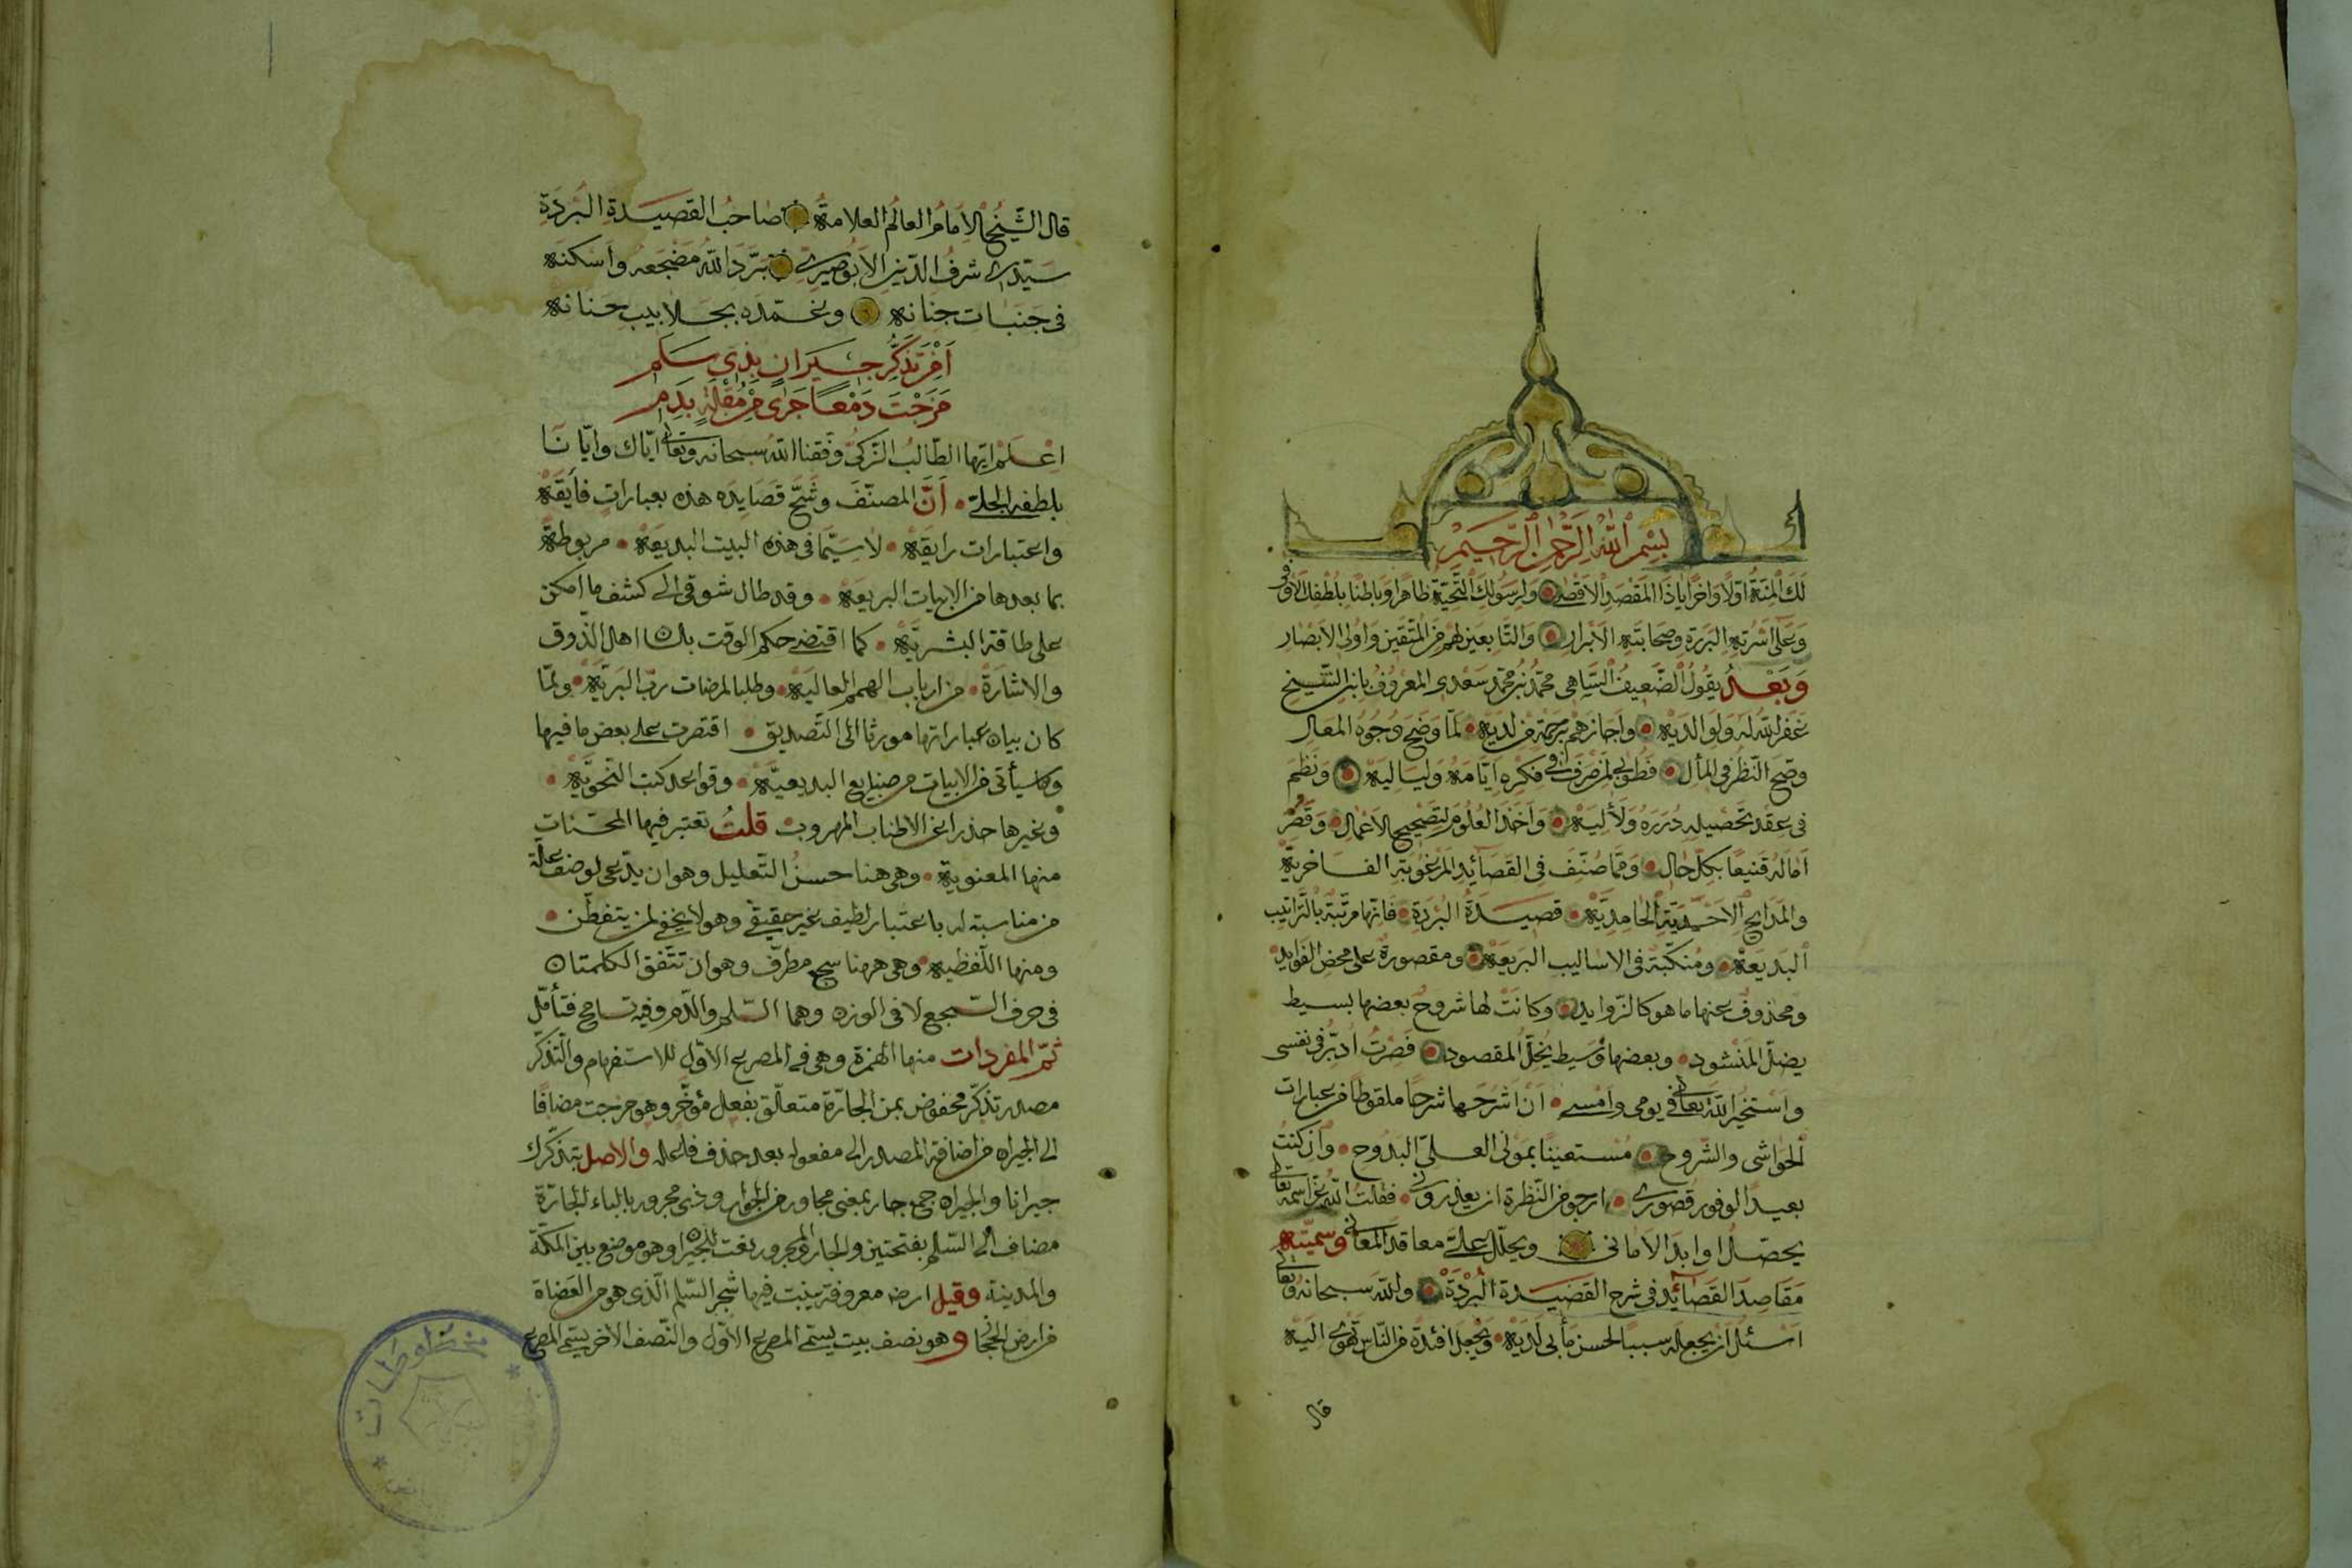 بِسْمِ اللّٰهِ الرَّحْمٰنِ الرَّحِيمِ
لَكَ الْمِنَّةُ اَوَّلًا وَاٰخِرًا يَاذَا الْمَقْصَدِ الْاَقْصٰى وَلِرَسُولِكَ التَّحِيَّةُ ظَاهِرًا وَبَاطِنًا بِلُطْفِكَ الْاَوْفٰى
وَعَلٰى اُسْرَتِهِ الْبَرَرَةِ وَصَحَابَتِهِ الْاَبْرَارِ وَالتَّابِعِينَ لَهُمْ مِنَ الْمُتَّقِينَ وَاُولِى الْاَبْصَارِ
وَبَعْدُ يَقُولُ الضَّعِيفُ السَّاهِى مُحَمَّدُ بْنُ مُحَمَّدٍ سَعْدِى الْمَعْرُوفُ بِابْنِ الشَّيْخِ
غَفَرَ اللّٰهُ لَهُ وَلِوَالِدَيْهِ وَاَجَازَهُمْ بِرَحْمَةٍ مِنْ لَدَيْهِ لَمَّا وَضَحَ وُجُوهُ المعال
وصح النَّظَرُ فى المأل فَطُوبٰى لِمَنْ صَرَفَ فى فِكْرِهِ اَيَّامَهُ وَلَيَالِيهِ وَنَظَمَ
فى عِقْدِ تَحْصِيلِهِ دُرَرَهُ وَلَأٰلِيهِ وَاَخَذَ الْعُلُومَ لِتَصْحِيحِ الْاَعْمَالِ وَقَصَّرَ
اٰمَالَهُ قَنِيعًا بِكُلِّ حَالٍ وَمِمَّا صُنِّفَ فِى القَصَائِدِ الْمَرْغُوبَةِ الفَاخريّة
والمَدَايح الاَحْمَدِيَّةِ الْحَامِدِيَّة قَصِيدَةُ الْبُرْدَةِ فَاِنَّهَا مُرَتَّبَةٌ بِالتَّرَاتِيب
الْبَدِيعَة وَمُنَكَّبَةٌ فى الاساليب البَرِيعَة ومقصورة على محض الفَوايد
ومحذوفٌ عنها ما هو كالزّوايد وكانَتْ لها شروحٌ بعضها بسيط
يضلّ الْمَنْشود وبعضها وَسيط يُخِلُّ المقصود فَصِرْتُ اُدَبِّرُ فى نفسى
وَاَسْتَخيرُ اللّٰهَ تَعَالٰى فى يومى وَاَمْسى اَنْ اَشْرَحَها شرحًا ملقوطًا من عبارات
الحَواشى والشّروح مُسْتَعينًا بِمَوْلٰى العلىّ البَدُوح وَاِنْ كُنْتُ
بعيدًا لوفور قُصورى ارجو من النّظرة ان يعذرونى فقلتُ اللّٰه عزّ اسمه تعالى
يحصّل اوابد الامانى ويحلّل علىّ معاقد المعانى وسمّيته
مَقَاصِدَ القَصَائِد فى شرح القصيدة الْبُرْدَة وللّٰه سبحانه وتعالى
اسئل اَن يجعله سببًا لحسن مأبى لديه وَيَجْعَلَ افئدةً من النّاس تَهْوِى اليه
قال
قال الشَّيْخُ الْاِمَامُ العالم العلامة صاحبُ القصيدة البُرْدَة
سيّدى شرفُ الدّين الاَبُوصيرى بَرَّدَ اللّٰهُ مَضْجَعَه وأسكنه
فى جَنَبات جنانه وتغمّده بجلابيب حنانه
اَمِنْ تَذَكُّرِ جِيرَانٍ بِذِى سَلَمٍ
مَزَجْتَ دَمْعًا جَرٰى مِنْ مُقْلَةٍ بِدَمِ
اِعْلَمْ ايّها الطّالبُ الزّكىّ وَفَّقنا اللّٰهُ سبحانه وتعالى ايّاك وايّانا
بلطفه الجلىّ اَنَّ المصنّفَ وشّح قَصَايده هذه بعبارات فايقة
واعتبارات رايقة لا سيّما فى هذه البيت البديعة مربوطة
بما بعدها من الابيات البريعة وقد طال شوقى الى كشف ما امكن
على طاقة البشريّة كما اقتضى حكم الوقت بلسان اهل الذّوق
والاشارة من ارباب الهمم العالية وطلبا لمرضات ربّ البريّة ولمّا
كان بيان عباراتها مورثا الى التّصديق اقتصرت على بعض ما فيها
وما سيأتى من الابيات من صنايع البديعيّة وقواعد كتب النّحويّة
وغيرها حذرا عن الاطناب المهروب قلتُ تعتبر فيها المحسّنات
منها المعنوية وهى هنا حسنُ التّعليل وهو ان يدّعى لوصف علّة
من مناسبة له باعتبار لطيف غير حقيقى وهو لا يخفى لمن يتفطّن
ومنها اللّفظية وهى ههنا سجع مطرّف وهو ان تتّفق الكلمتان
فى حرف السّجع لا فى الوزن وهما السّلم والدّم وفيه تسامح فتأمّل
ثمّ المفردات منها الهمزة وهى فى المصرع الاوّل للاستفهام والتّذكّر
مصدر تذكّر مخفوض بمن الجارّة متعلّق بفعل مؤخّر وهو مزجت مضافًا
الى الجيران من اضافة المصدر الى مفعوله بعد حذف فاعله والاصل بتذكّرك
جيرانا والجيران جمع جار بمعنى مجاور من الجوار وذى مجرور بالباء الجارّة
مضاف الى السّلم بفتحتين والجار والمجرور نعت للجيران وهو موضع بين المكّة
والمدينة وقيل ارض معروفة ينبت فيها شجر السّلم الّذى هو من العضاة
من ارض الحجاز وهو نصف بيت يسمّى المصرع الاوّل والنّصف الآخر يسمّى المصرع
مخطوطات